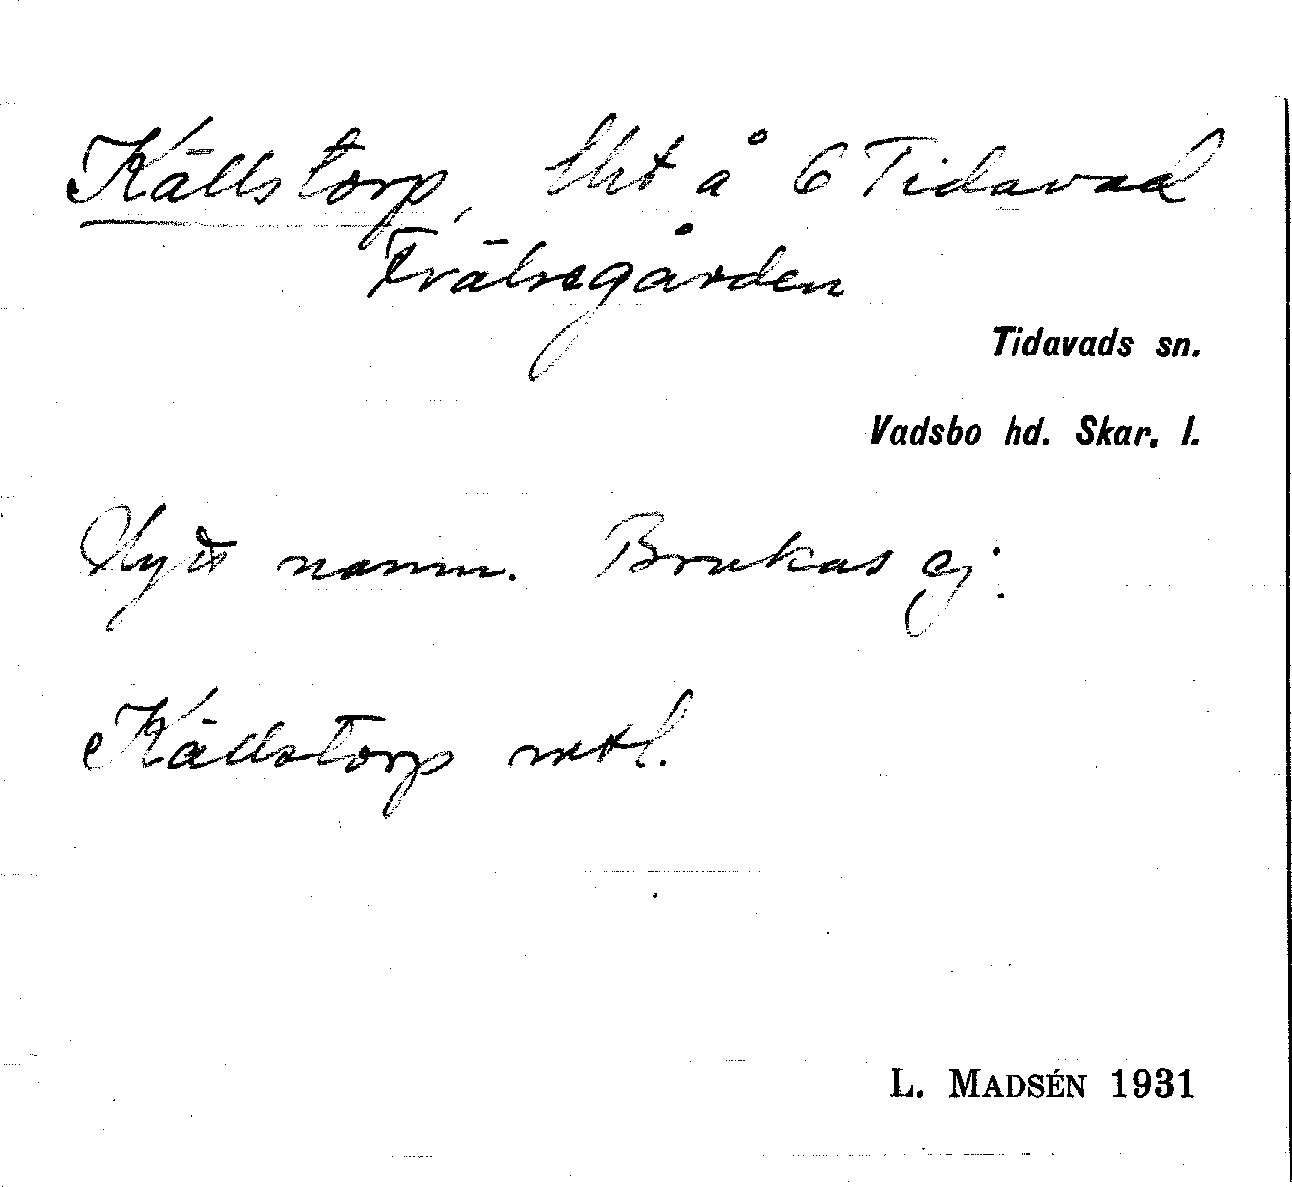 Källstorp, lht å 6 Tidavad
Frälsegården
Tidavads sn.
Vadsbo hd. Skar. l.
Nytt namn. Brukas ej.
Källstorp mtl.
L. MADSÉN 1931